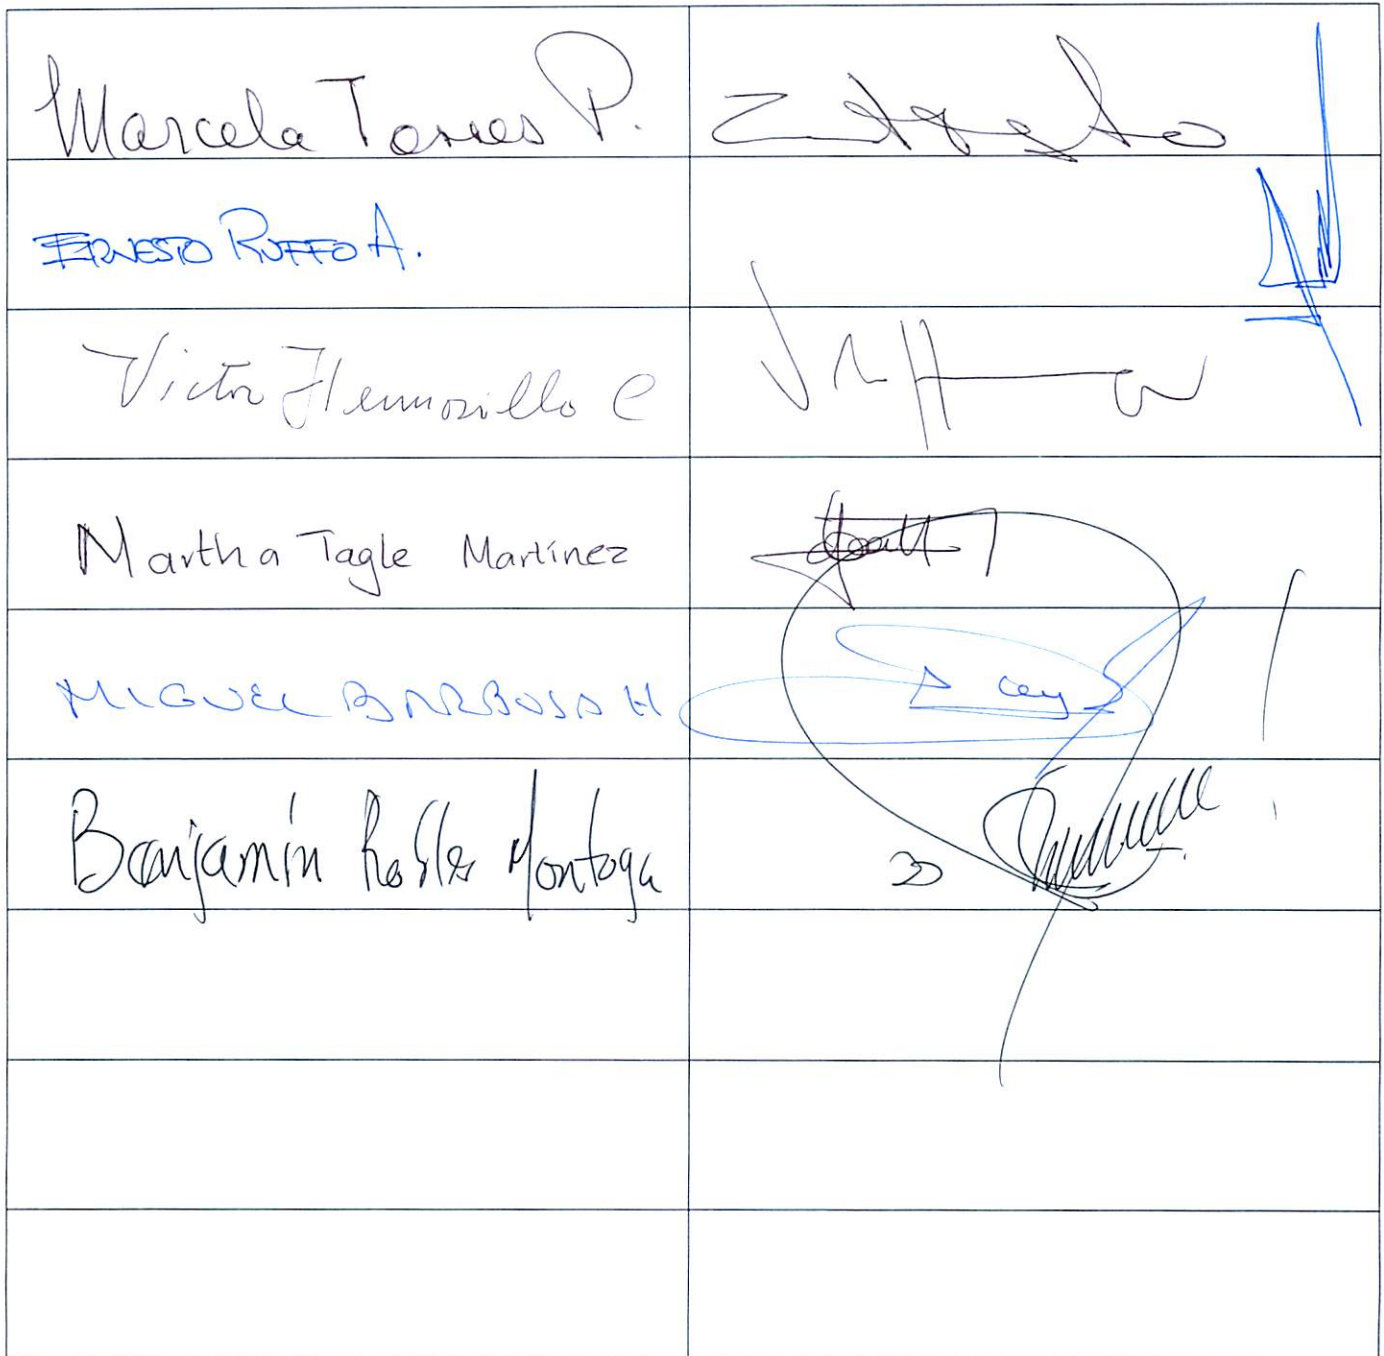 Marcela Torres P.
ERNESTO RUFFO A.
Victor Hermosillo C
Martha Tagle Martínez
MIGUEL BARBOSA H
Benjamín Robles Montoya